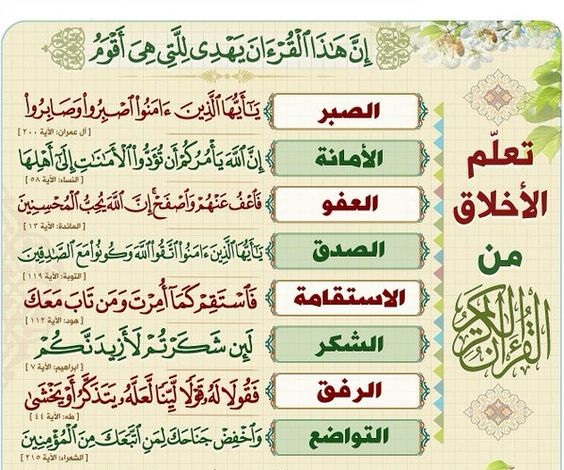 إِنَّ هَٰذَا الْقُرْءَانَ يَهْدِى لِلَّتِى هِىَ أَقْوَمُ
تعلّم
الأخلاق
من
القرآن الكريم
الصبر
يَٰٓأَيُّهَا الَّذِينَ ءَامَنُوا۟ اصْبِرُوا۟ وَصَابِرُوا۟
[آل عمران: الآية ٢٠٠]
الأمانة
إِنَّ اللَّهَ يَأْمُرُكُمْ أَن تُؤَدُّوا۟ الْأَمَٰنَٰتِ إِلَىٰٓ أَهْلِهَا
[النساء: الآية ٥٨]
العفو
فَاعْفُ عَنْهُمْ وَاصْفَحْ إِنَّ اللَّهَ يُحِبُّ الْمُحْسِنِينَ
[المائدة: الآية ١٣]
الصدق
يَٰٓأَيُّهَا الَّذِينَ ءَامَنُوا۟ اتَّقُوا۟ اللَّهَ وَكُونُوا۟ مَعَ الصَّٰدِقِينَ
[التوبة: الآية ١١٩]
الاستقامة
فَاسْتَقِمْ كَمَآ أُمِرْتَ وَمَن تَابَ مَعَكَ
[هود: الآية ١١٢]
الشكر
لَئِن شَكَرْتُمْ لَأَزِيدَنَّكُمْ
[ابراهيم: الآية ٧]
الرفق
فَقُولَا لَهُۥ قَوْلًا لَّيِّنًا لَّعَلَّهُۥ يَتَذَكَّرُ أَوْ يَخْشَىٰ
[طه: الآية ٤٤]
التواضع
وَاخْفِضْ جَنَاحَكَ لِمَنِ اتَّبَعَكَ مِنَ الْمُؤْمِنِينَ
[الشعراء: الآية ٢١٥]